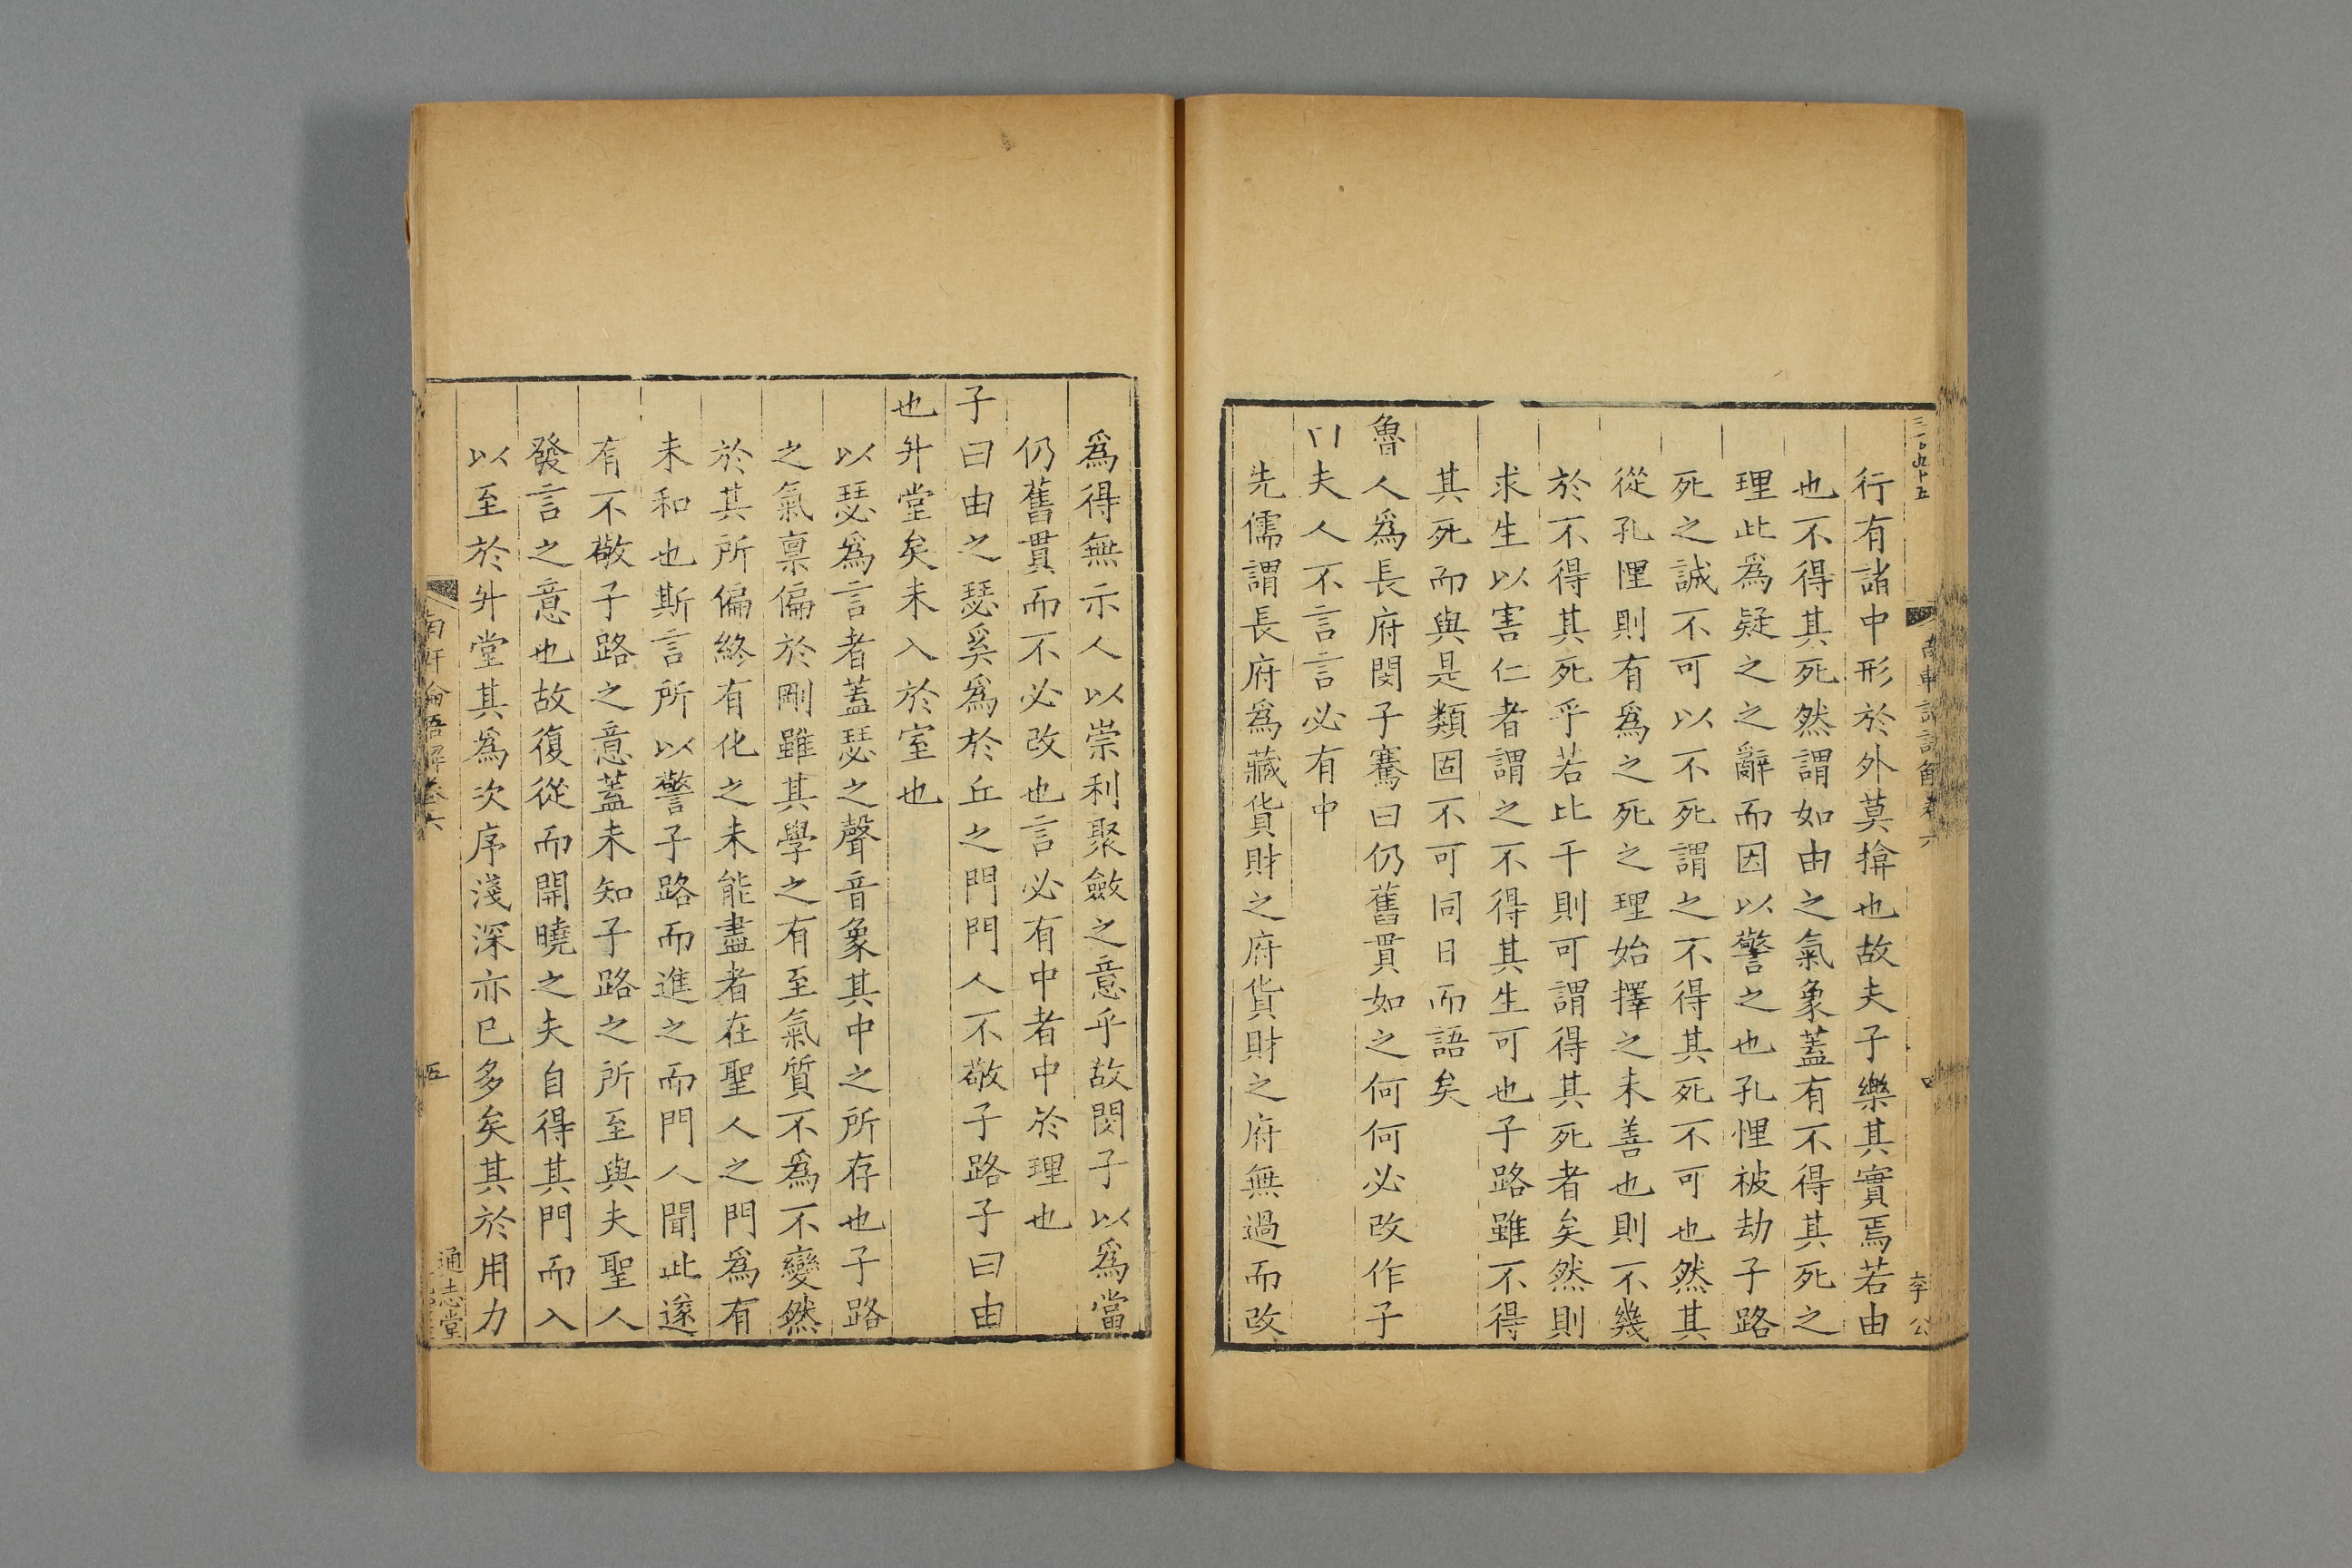 行有諸中形於外莫揜也故夫子樂其實焉若由
也不得其死然謂如由之氣象蓋有不得其死之
理此爲疑之之辭而因以警之也孔悝被劫子路
死之誠不可以不死謂之不得其死不可也然其
從孔悝則有爲之死之理始擇之未善也則不幾
於不得其死乎若比干則可謂得其死者矣然則
求生以害仁者謂之不得其生可也子路雖不得
其死而與是類固不可同日而語矣
魯人爲長府閔子騫曰仍舊貫如之何何必改作子
夫人不言言必有中
先儒謂長府爲藏貨財之府貨財之府無過而改
爲得無示人以崇利聚斂之意乎故閔子以爲當
仍舊貫而不必改也言必有中者中於理也
子曰由之瑟奚爲於丘之門門人不敬子路子曰由
也升堂矣未入於室也
以瑟爲言者蓋瑟之聲音象其中之所存也子路
之氣禀偏於剛雖其學之有至氣質不爲不變然
於其所偏終有化之未能盡者在聖人之門爲有
未和也斯言所以警子路而進之而門人聞此遂
有不敬子路之意蓋未知子路之所至與夫聖人
發言之意也故復從而開曉之夫自得其門而入
以至於升堂其爲次序淺深亦已多矣其於用力
南軒論語解卷六
五
通志堂